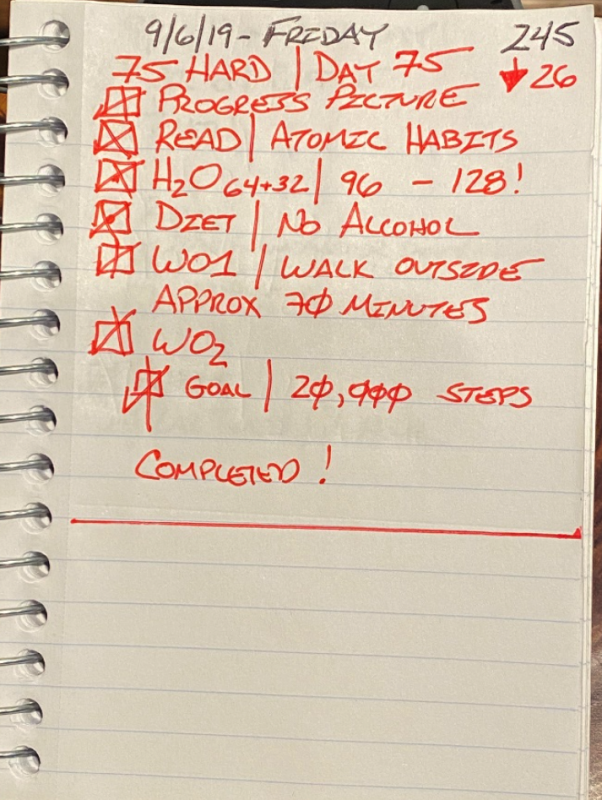 9/6/19 - FRIDAY 245
75 HARD | DAY 75 ↓26
☒ PROGRESS PICTURE
☒ READ | ATOMIC HABITS
☒ H₂O 64+32 | 96 - 128!
☒ DIET | NO ALCOHOL
☒ WO1 | WALK OUTSIDE
APPROX 70 MINUTES
☒ WO2
☒ GOAL | 20,000 STEPS
COMPLETED!